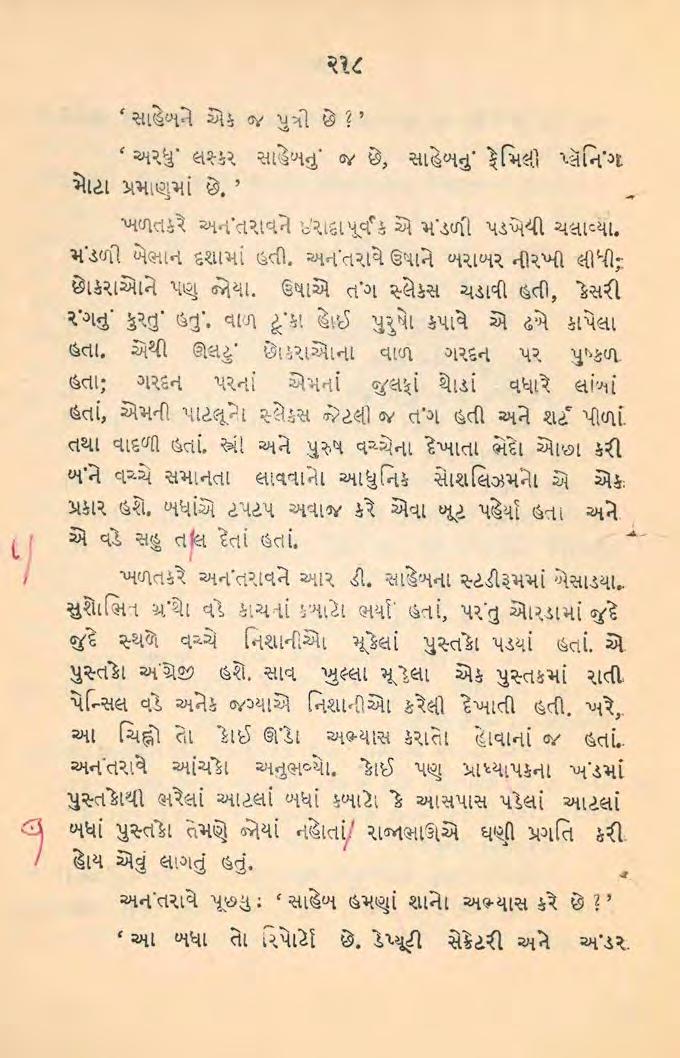 ૨૧૮
‘ સાહેબને એક જ પુત્રી છે ? ’
‘ અરધું લશ્કર સાહેબનું જ છે, સાહેબનું ફેમિલી પ્લૅનિંગ
મોટા પ્રમાણમાં છે. ’
ખળતકરે અનંતરાવને ઇરાદાપૂર્વક એ મંડળી પડખેથી ચલાવ્યા.
મંડળી બેભાન દશામાં હતી. અનંતરાવે ઉષાને બરાબર નીરખી લીધી;
છોકરાઓને પણ જોયા. ઉષાએ તંગ સ્લેકસ ચડાવી હતી, કેસરી
રંગનું કુરતું હતું. વાળ ટૂંકા હોઈ પુરુષો કપાવે એ ઢબે કાપેલા
હતા. એથી ઊલટું છોકરાઓના વાળ ગરદન પર પુષ્કળ
હતા; ગરદન પરનાં એમનાં જુલફાં થોડાં વધારે લાંબાં
હતાં, એમની પાટલૂનો સ્લેકસ જેટલી જ તંગ હતી અને શર્ટ પીળાં
તથા વાદળી હતાં. સ્ત્રી અને પુરુષ વચ્ચેના દેખાતા ભેદો ઓછા કરી
બંને વચ્ચે સમાનતા લાવવાનો આધુનિક સોશલિઝમનો એ એક
પ્રકાર હશે. બધાંએ ટપટપ અવાજ કરે એવા બૂટ પહેર્યા હતા અને
એ વડે સહુ તાલ દેતાં હતાં.
ખળતકરે અનંતરાવને આર ડી. સાહેબના સ્ટડીરૂમમાં બેસાડયા.
સુશોભિત ગ્રંથો વડે કાચનાં કબાટો ભર્યાં હતાં, પરંતુ ઓરડામાં જુદે
જુદે સ્થળે વચ્ચે નિશાનીઓ મૂકેલાં પુસ્તકો પડયાં હતાં. એ
પુસ્તકો અંગ્રેજી હશે. સાવ ખુલ્લા મૂકેલા એક પુસ્તકમાં રાતી
પેન્સિલ વડે અનેક જગ્યાએ નિશાનીઓ કરેલી દેખાતી હતી. ખરે,
આ ચિહ્નો તો કોઈ ઊંડો અભ્યાસ કરાતો હોવાનાં જ હતાં.
અનંતરાવે આંચકો અનુભવ્યો. કોઈ પણ પ્રાધ્યાપકના ખંડમાં
પુસ્તકોથી ભરેલાં આટલાં બધાં કબાટો કે આસપાસ પડેલાં આટલાં
બધાં પુસ્તકો તેમણે જોયાં નહોતાં રાજાભાઊએ ઘણી પ્રગતિ કરી
હોય એવું લાગતું હતું.
અનંતરાવે પૂછયુ : ‘ સાહેબ હમણાં શાનો અભ્યાસ કરે છે ? ’
‘ આ બધા તો રિપોર્ટો છે. ડેપ્યૂટી સેક્રેટરી અને અંડર